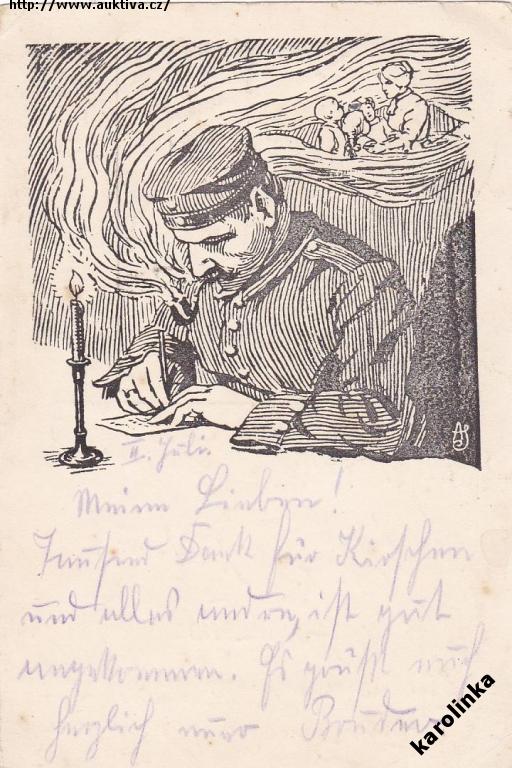 http://www.auktiva.cz/
AJ
II. Juli.
Meine Lieben!
Tausend Dank für Kirschen
und alles andre, ist gut
angekommen. Es grüßt euch
herzlich euer Bruder
karolinka